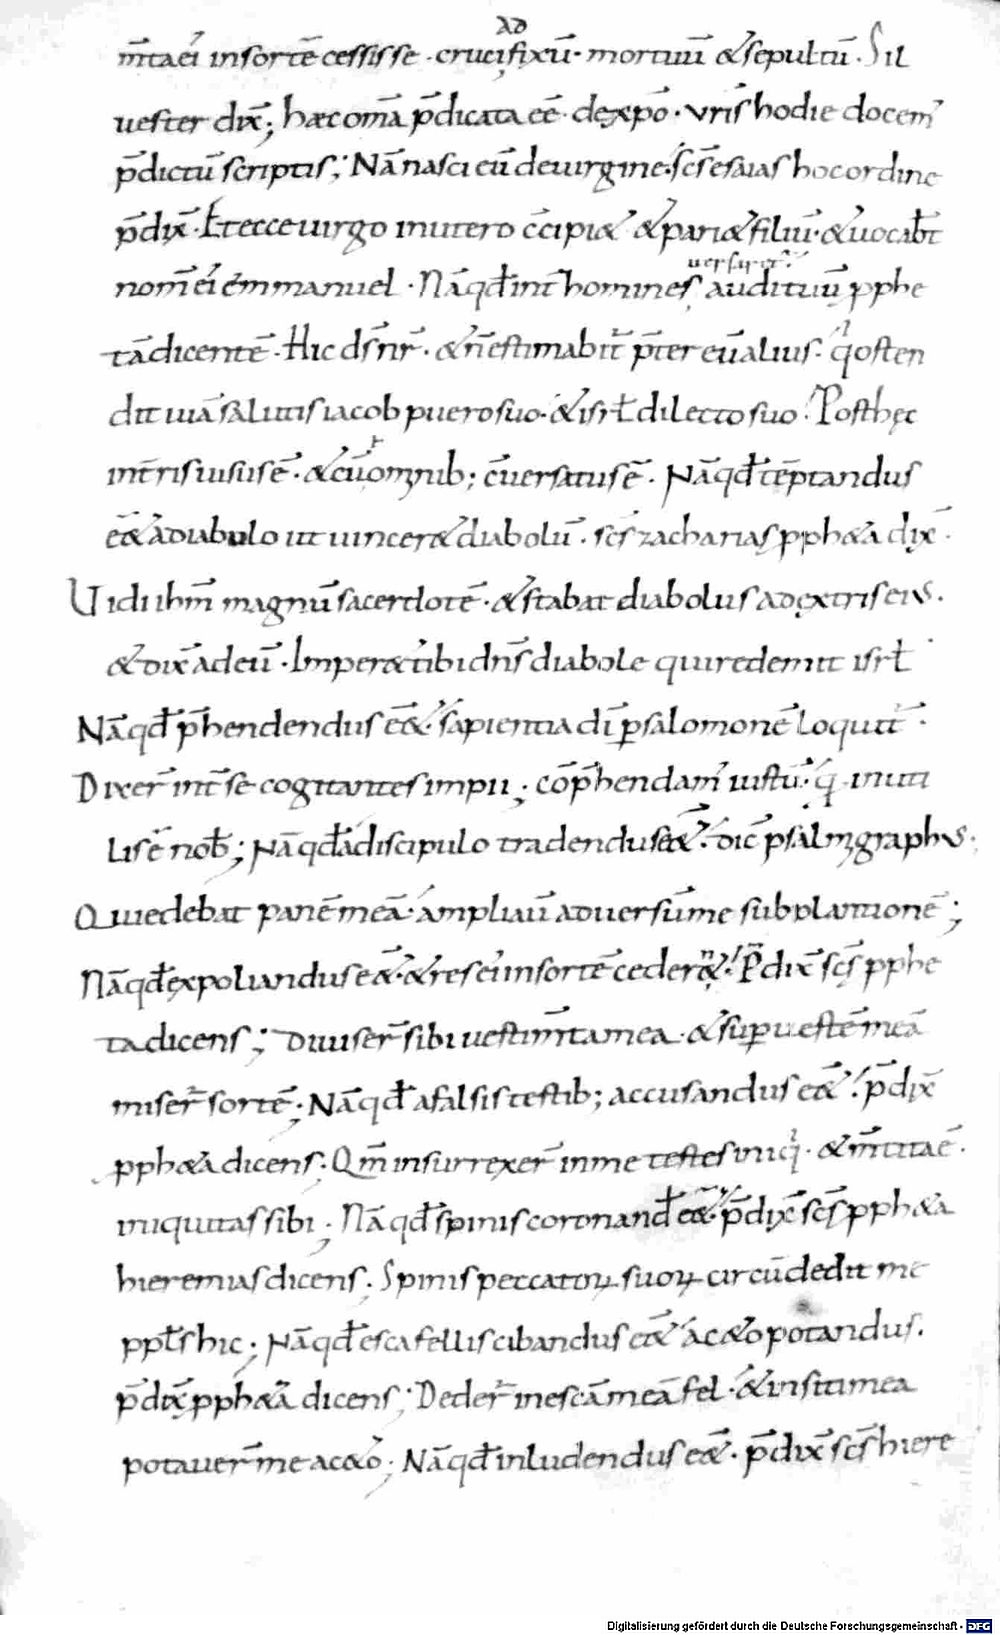 m̄taei᾽ insortē cessisse · crucifixū · mortuū &sepultū · Sil
ad
uester dix̄; haec om̄a p̄dicata eē dexp̄o · vr̄is hodie docem᾽
p̄dictū scriptis; Nā nasci eū deuirgine · sc̄s esaias hoc ordine
p̄dix̄ · Et ecce uirgo inutero c̄cipi& &pari&filiū · &uocab̄t
nom̄ ei᾽ emmanuel · Nāqd̄ int̄ homines auditiuū pphe
uersar&ur
tā dicentē · Hic d̄s nr̄ · &n̄ estimabit̄ p̄ter eū alius · q osten
dit uiā salutis iacob puerosuo · &isrł dilecto suo · Posthęc
int̄ris uisus ē · &cū omnib; c̄uersatus ē · Nāqd̄ tēptandus
eē& adiabulo ut uincer& diabolū · sc̄s zacharias pph&a dix̄ ·
Uidi ihm̄ magnū sacerdotē · &stabat diabolus adextris eius ·
&dix̄ adeū · Imper& tibi dn̄s diabole qui redemit isrł
Nāqd̄ p̄hendendus eē& · sapientia dī p salomonē loquit̄ ·
Dixer̄ int̄ se cogitantes impii; cōp̄hendam᾽ iustū · q inuti
lis ē nob̄; Nāqd̄ adiscipulo tradendus eē& · dic̄ psalmgraphus ·
Qui edebat panē meā · ampliauī aduersū me subplantationē;
Nāqd̄ expoliandus e& · &res ei᾽ insortē ceder& · P̄dix̄ sc̄s pphe
ta dicens; Diuiser̄ sibi uestim̄ta mea · &sup uestē meā
miser̄ sortē; Nāqd̄ afalsis testib; accusandus e& · p̄dix̄
pph&a dicens; Qm̄ insurrexer̄ in me testes iniq · &m̄titaē ·
iniquitas sibi; Nāqd̄ spinis coronand̄ e& · p̄dix̄ sc̄s pph&a
hieremias dicens; Spinis peccatoꝝ suoꝝ circūdedit me
ppłs hic; Nāqd̄ esca fellis cibandus e& ac&o potandus ·
p̄dix̄ pph&a dicens; Deder̄ inescā meā fel · &insiti mea
potauer̄ me ac&o; Nāqd̄ inludendus e& · p̄dix̄ sc̄s hiere
Digitalisierung gefördert durch die Deutsche Forschungsgemeinschaft - DFG